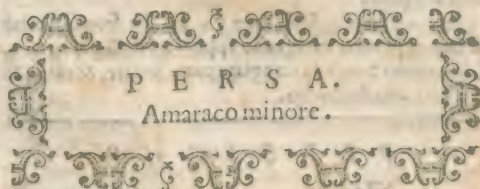 P E R S A.
Amaraco minore.